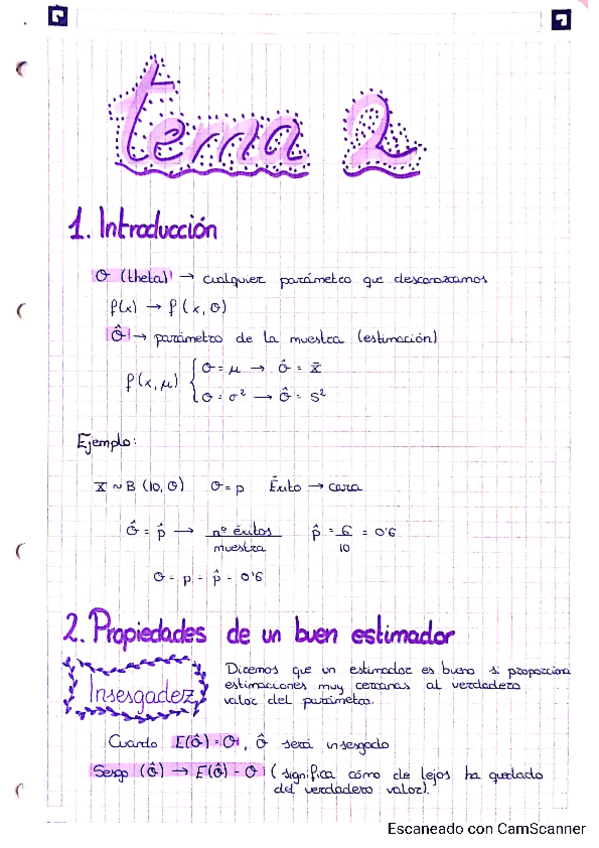 tema 2
1. Introducción
θ (theta) → cualquier parámetro que desconozcamos
f(x) → f(x, θ)
θ̂ → parámetro de la muestra (estimación)
f(x, μ) { θ = μ → θ̂ = x̄
θ = σ² → θ̂ = S²
Ejemplo:
X ~ B (10, θ) θ = p Éxito → cara
θ̂ = p̂ → nº éxitos / muestra p̂ = 6/10 = 0'6
θ = p = p̂ = 0'6
2. Propiedades de un buen estimador
Insesgadez
Diremos que un estimador es bueno si proporciona
estimaciones muy cercanas al verdadero
valor del parámetro.
Cuando E(θ̂) = θ, θ̂ será insesgado
Sesgo (θ̂) → E(θ̂) - θ (significa cómo de lejos ha quedado
del verdadero valor).
Escaneado con CamScanner